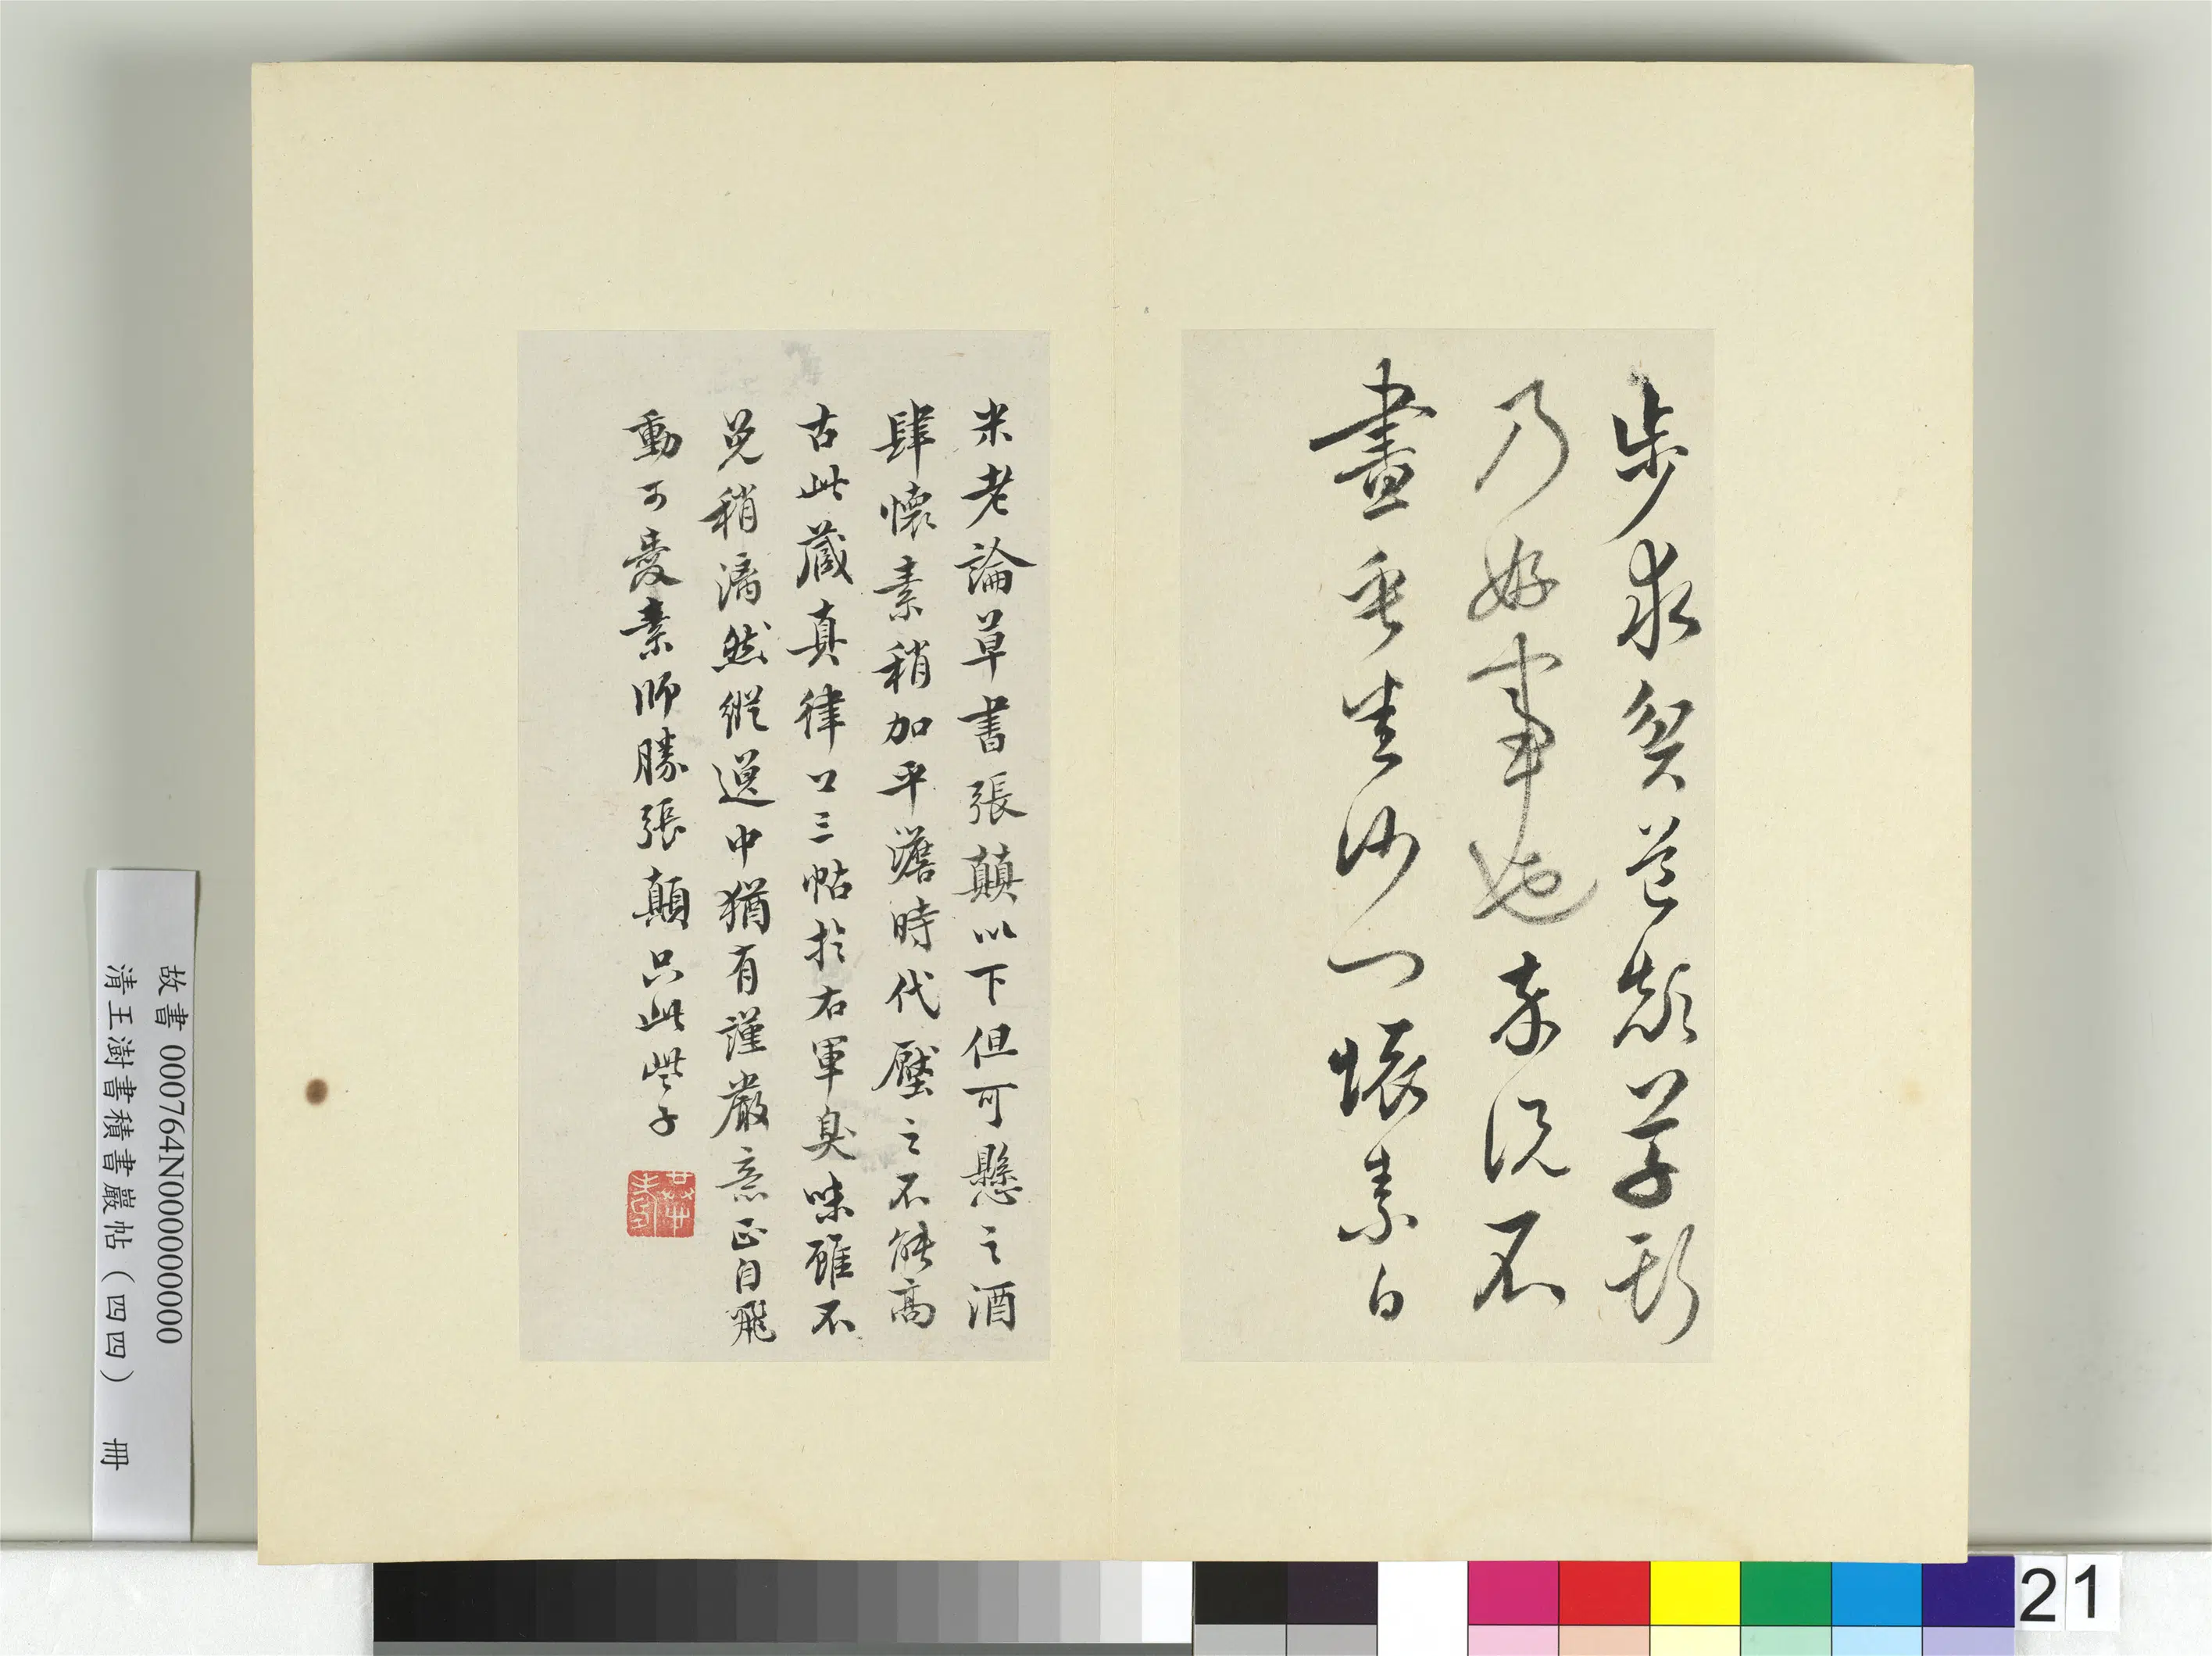 步求貧道顛草斯
乃好事也卒況不
盡垂悉沙門懷素白
米老論草書張顛以下但可懸之酒
肆懷素稍加平澹時代壓之不能高
古此藏真律公三帖於右軍臭味雖不
免稍漓然縱逸中猶有謹嚴意正自飛
動可愛素師勝張顛只此些子
故書 000764N000000000
清王澍書積書巖帖（四四） 冊
21